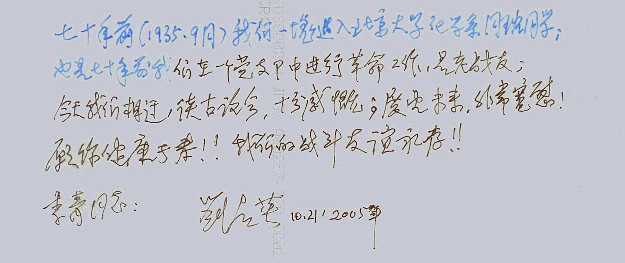 七十年前(1935.9月)我们一块进入北京大学化学系同班同学;
也是七十年前我们在一个党支部中进行革命工作,是老战友;
今天我们相逢,谈古论今,十分感慨;展望未来,非常宽慰!
愿你健康长寿!!我们的战斗友谊永存!!
李青同志: 刘 英 10.21/2005年